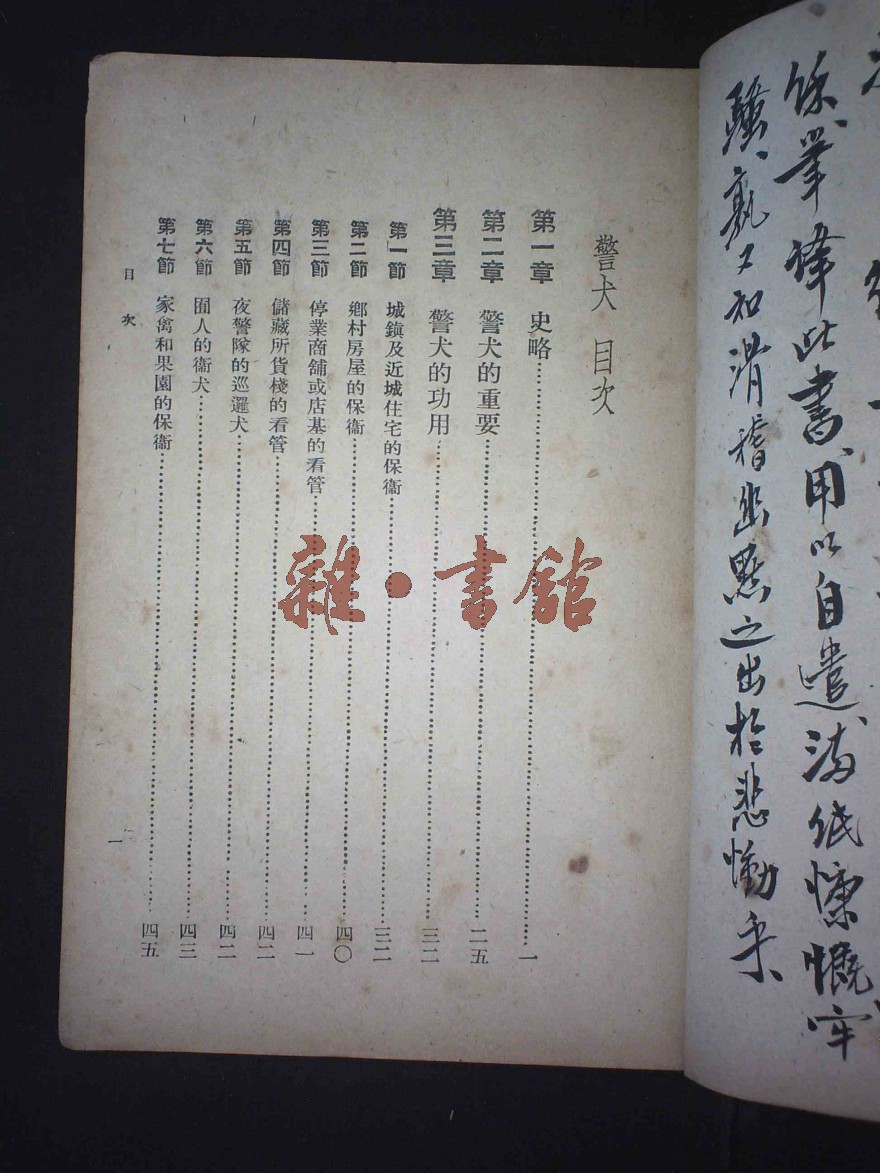 餘業譯此書用以自遣滿紙慷慨牢
騷孰又知滑稽幽默之出於悲慟乎
警犬 目次
第一章 史略…………一
第二章 警犬的重要…………二五
第三章 警犬的功用…………三二
第一節 城鎭及近城住宅的保衞…………三二
第二節 鄉村房屋的保衞…………四〇
第三節 停業商舖或店基的看管…………四一
第四節 儲藏所貨棧的看管…………四二
第五節 夜警隊的巡邏犬…………四二
第六節 囿人的衞犬…………四三
第七節 家禽和果園的保衞…………四五
目次
一
雜·書館